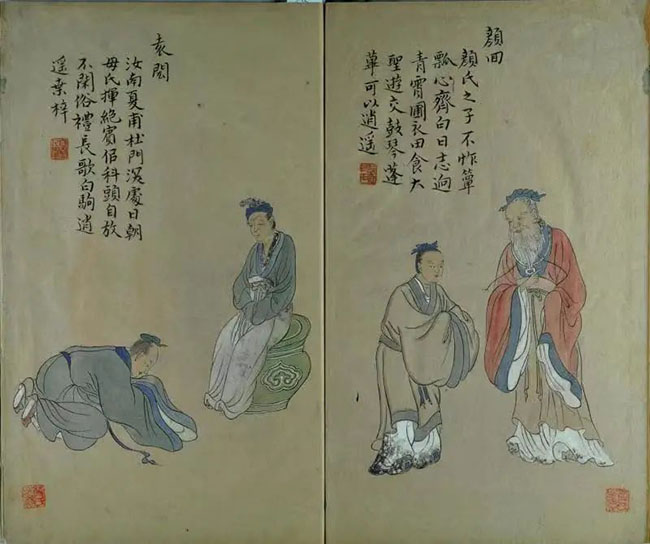 顏回
顏氏之子不怍簞
瓢心齊白日志迥
青霄圃衣田食大
聖遊交鼓琴蓬
蓽可以逍遥
袁閎
汝南夏甫杜門深處日朝
母氏揮絶賓侣科頭自放
不閑俗禮長歌白駒逍
遥桑梓